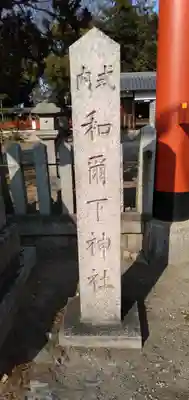 式内
和爾下神社